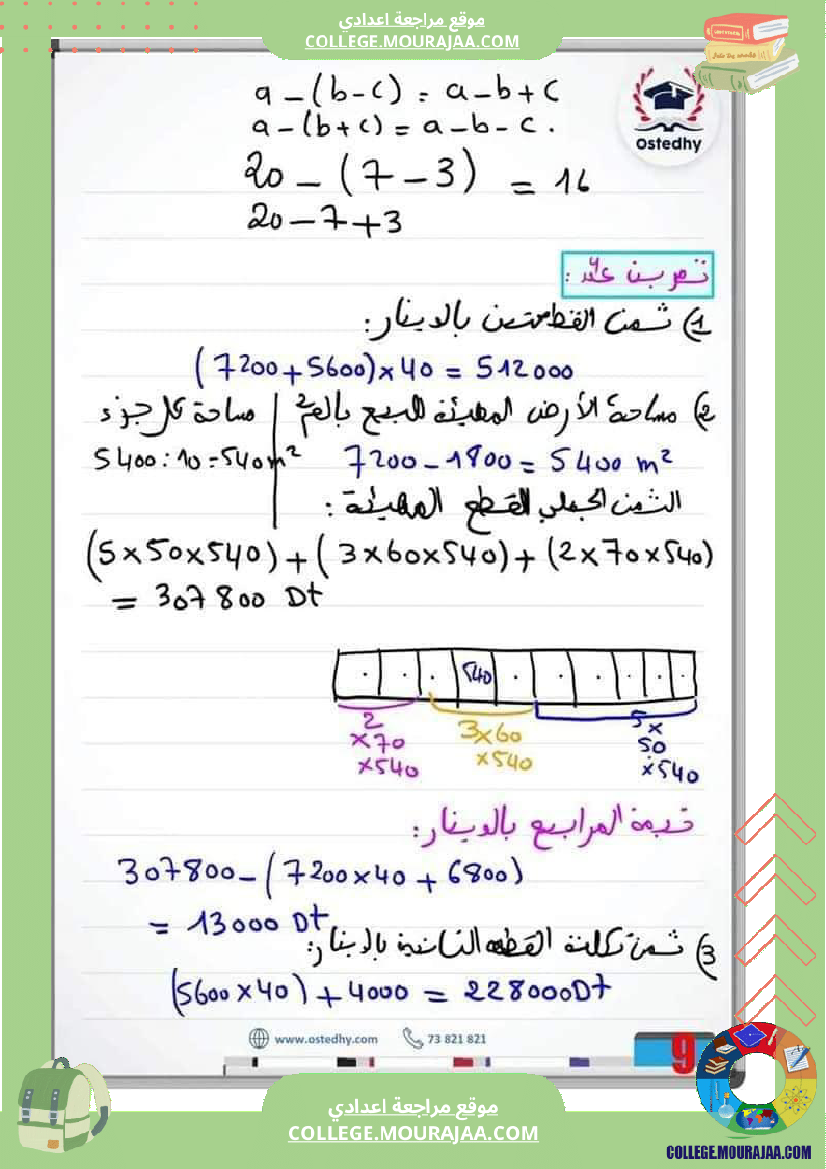 موقع مراجعة اعدادي
COLLEGE.MOURAJAA.COM
a - (b - c) = a - b + c
a - (b + c) = a - b - c.
Ostedhy
20 - (7 - 3) = 16
20 - 7 + 3
تمرين عدد :
1) ثمن القطعتين بالدينار:
(7200 + 5600) × 40 = 512000
2) مساحة الأرض المهيئة للبيع بالم² | مساحة كل جزء
7200 - 1800 = 5400 m² | 5400 : 10 = 540 m²
الثمن الجملي للقطع المهيئة :
(5 × 50 × 540) + (3 × 60 × 540) + (2 × 70 × 540)
= 307800 Dt
540
2 × 70 × 540
3 × 60 × 540
5 × 50 × 540
قيمة المرابيح بالدينار:
307800 - (7200 × 40 + 6800)
= 13000 Dt
3) ثمن تكلفة القطعة الثانية بالدينار:
(5600 × 40) + 4000 = 228000 Dt
www.ostedhy.com
73 821 821
9
موقع مراجعة اعدادي
COLLEGE.MOURAJAA.COM
COLLEGE.MOURAJAA.COM